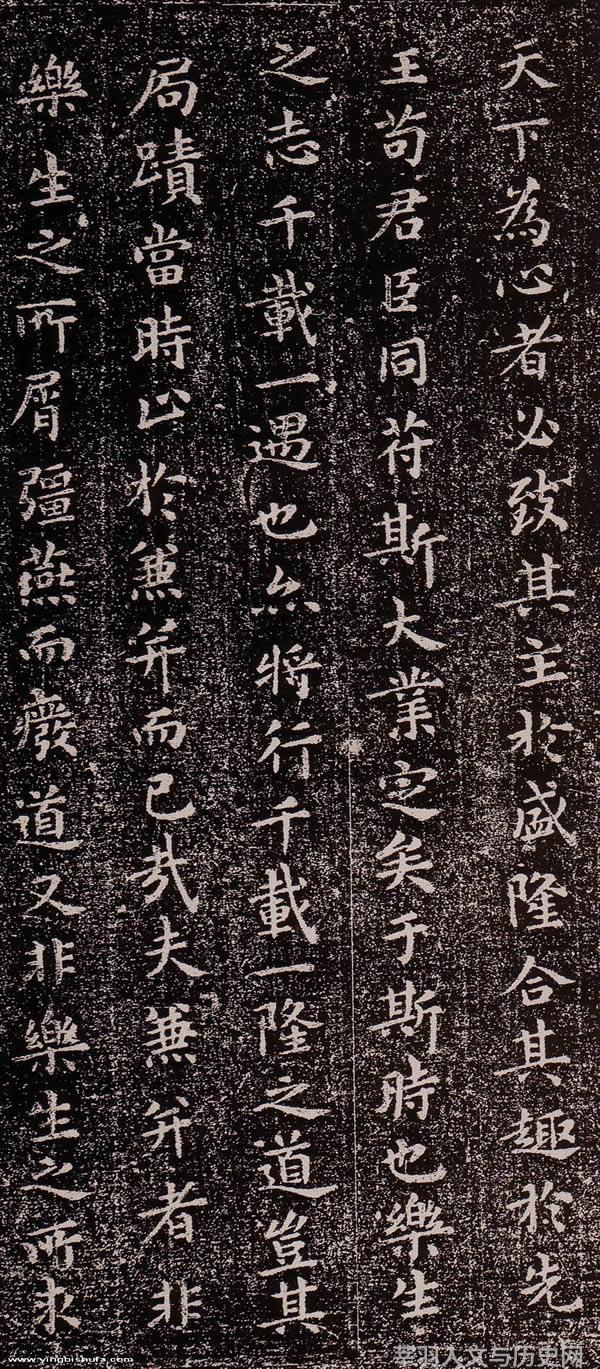 天下為心者必致其主於盛隆合其趣於先
王苟君臣同符斯大業定矣于斯時也樂生
之志千載一遇也亦將行千載一隆之道豈其
局蹟當時止於兼并而已哉夫兼并者非
樂生之所屑彊燕而廢道又非樂生之所求
www.yingbishufa.com
芸羽人文与历史网